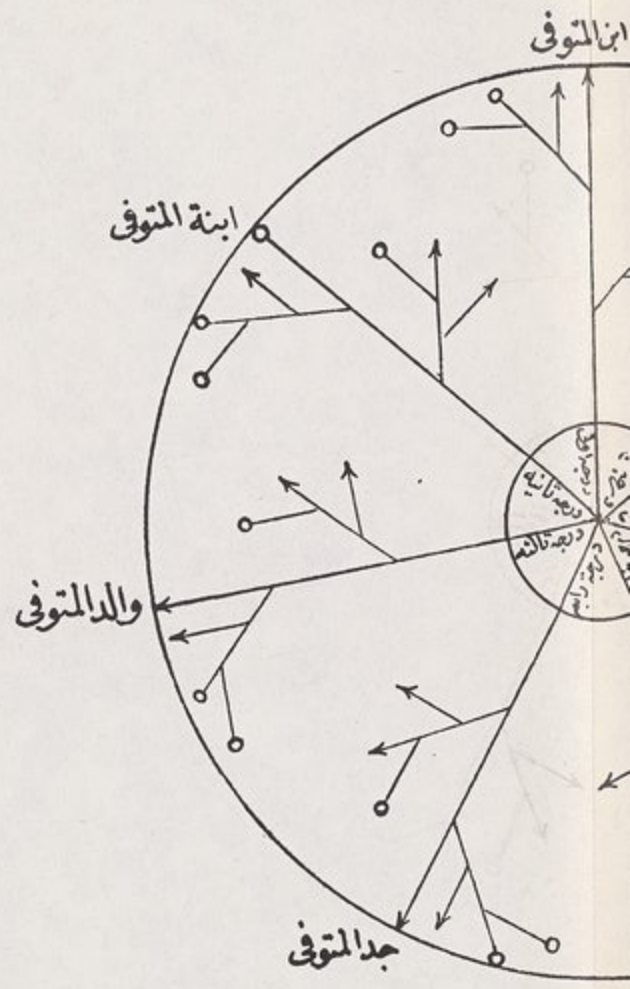 ابن المتوفى
ابنة المتوفى
والد المتوفى
جد المتوفى
درجة اولى
درجة ثانية
درجة ثالثة
درجة رابعة